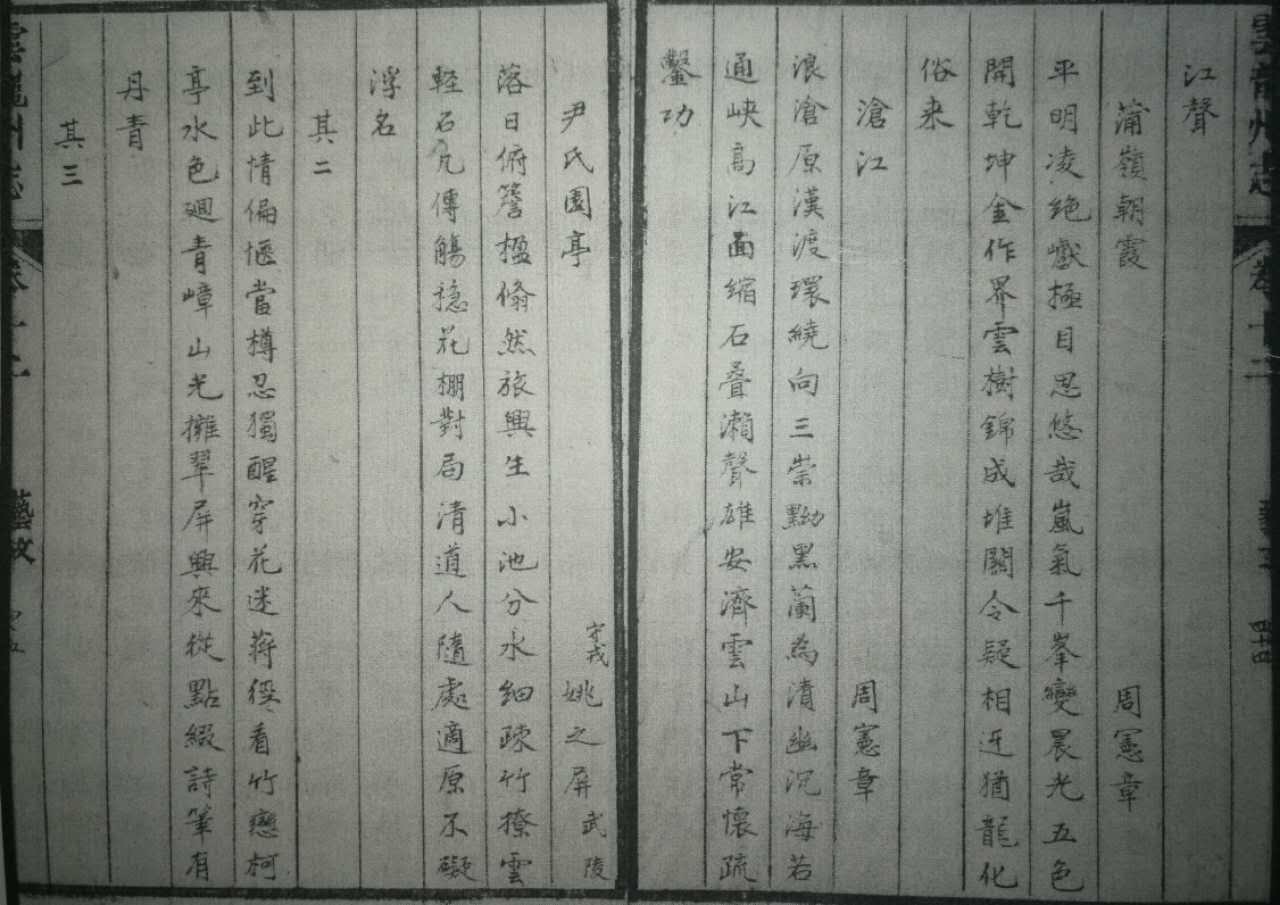 雲龍州志 卷十二 藝文 四十四
江聲
蒲嶺朝霞 周憲章
平明凌絶巘極目思悠哉嵐氣千峯變晨光五色
開乾坤金作界雲樹錦成堆關令疑相迓猶龍化
俗来
滄江 周憲章
浪滄原漢渡環繞向三崇黝黑蘭為漬幽沉海若
通峽高江面縮石叠瀨聲雄安濟雲山下常懷疏
鑿功
尹氏園亭 守戎姚之屏武陵
落日俯簷楹翛然旅興生小池分水细疎竹撩雲
軽石凢傳觴穏花棚對局清道人隨處適原不礙
浮名
其二
到此情偏愜當樽忍獨醒穿花迷蔣徑看竹戀柯
亭水色迴青嶂山光擁翠屏興來從點綴詩筆有
丹青
其三
雲龍州志 藝文